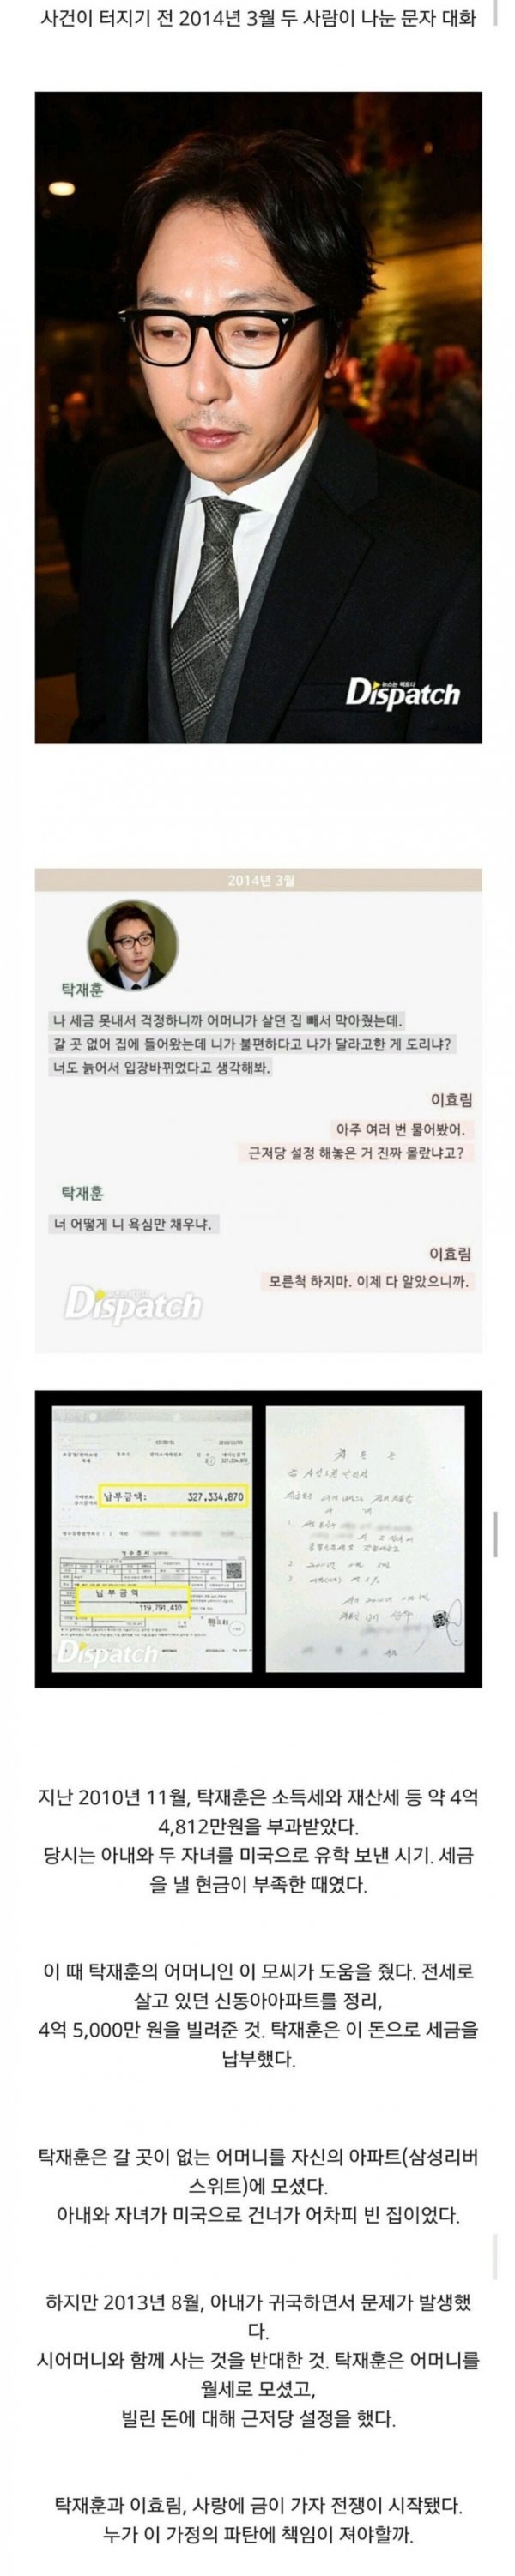 사건이 터지기 전 2014년 3월 두 사람이 나눈 문자 대화
뉴스는 팩트다
Dispatch
2014년 3월
탁재훈
나 세금 못내서 걱정하니까 어머니가 살던 집 빼서 막아줬는데.
갈 곳 없어 집에 들어왔는데 니가 불편하다고 나가 달라고한 게 도리냐?
너도 늙어서 입장바뀌었다고 생각해봐.
이효림
아주 여러 번 물어봤어.
근저당 설정 해놓은 거 진짜 몰랐냐고?
탁재훈
너 어떻게 니 욕심만 채우냐.
이효림
모른척 하지마. 이제 다 알았으니까.
Dispatch
납부금액: 327,334,870
납부금액
119,791,410
Dispatch
지난 2010년 11월, 탁재훈은 소득세와 재산세 등 약 4억
4,812만원을 부과받았다.
당시는 아내와 두 자녀를 미국으로 유학 보낸 시기. 세금
을 낼 현금이 부족한 때였다.
이 때 탁재훈의 어머니인 이 모씨가 도움을 줬다. 전세로
살고 있던 신동아아파트를 정리,
4억 5,000만 원을 빌려준 것. 탁재훈은 이 돈으로 세금을
납부했다.
탁재훈은 갈 곳이 없는 어머니를 자신의 아파트(삼성리버
스위트)에 모셨다.
아내와 자녀가 미국으로 건너가 어차피 빈 집이었다.
하지만 2013년 8월, 아내가 귀국하면서 문제가 발생했
다.
시어머니와 함께 사는 것을 반대한 것. 탁재훈은 어머니를
월세로 모셨고,
빌린 돈에 대해 근저당 설정을 했다.
탁재훈과 이효림, 사랑에 금이 가자 전쟁이 시작됐다.
누가 이 가정의 파탄에 책임이 져야할까.